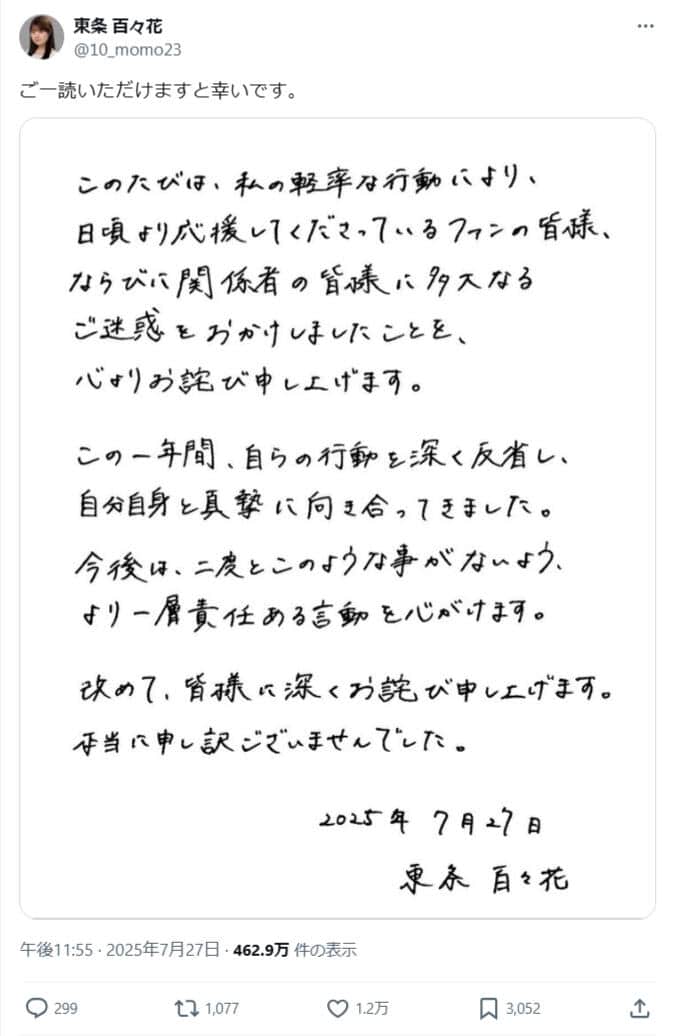 東条 百々花
@10_momo23
ご一読いただけますと幸いです。
このたびは、私の軽率な行動により、
日頃より応援してくださっているファンの皆様、
ならびに関係者の皆様に多大なる
ご迷惑をおかけしましたことを、
心よりお詫び申し上げます。
この一年間、自らの行動を深く反省し、
自分自身と真摯に向き合ってきました。
今後は、二度とこのような事がないよう、
より一層責任ある言動を心がけます。
改めて、皆様に深くお詫び申し上げます。
本当に申し訳ございませんでした。
2025年 7月27日
東条 百々花
午後11:55 · 2025年7月27日 · 462.9万 件の表示
299 1,077 1.2万 3,052